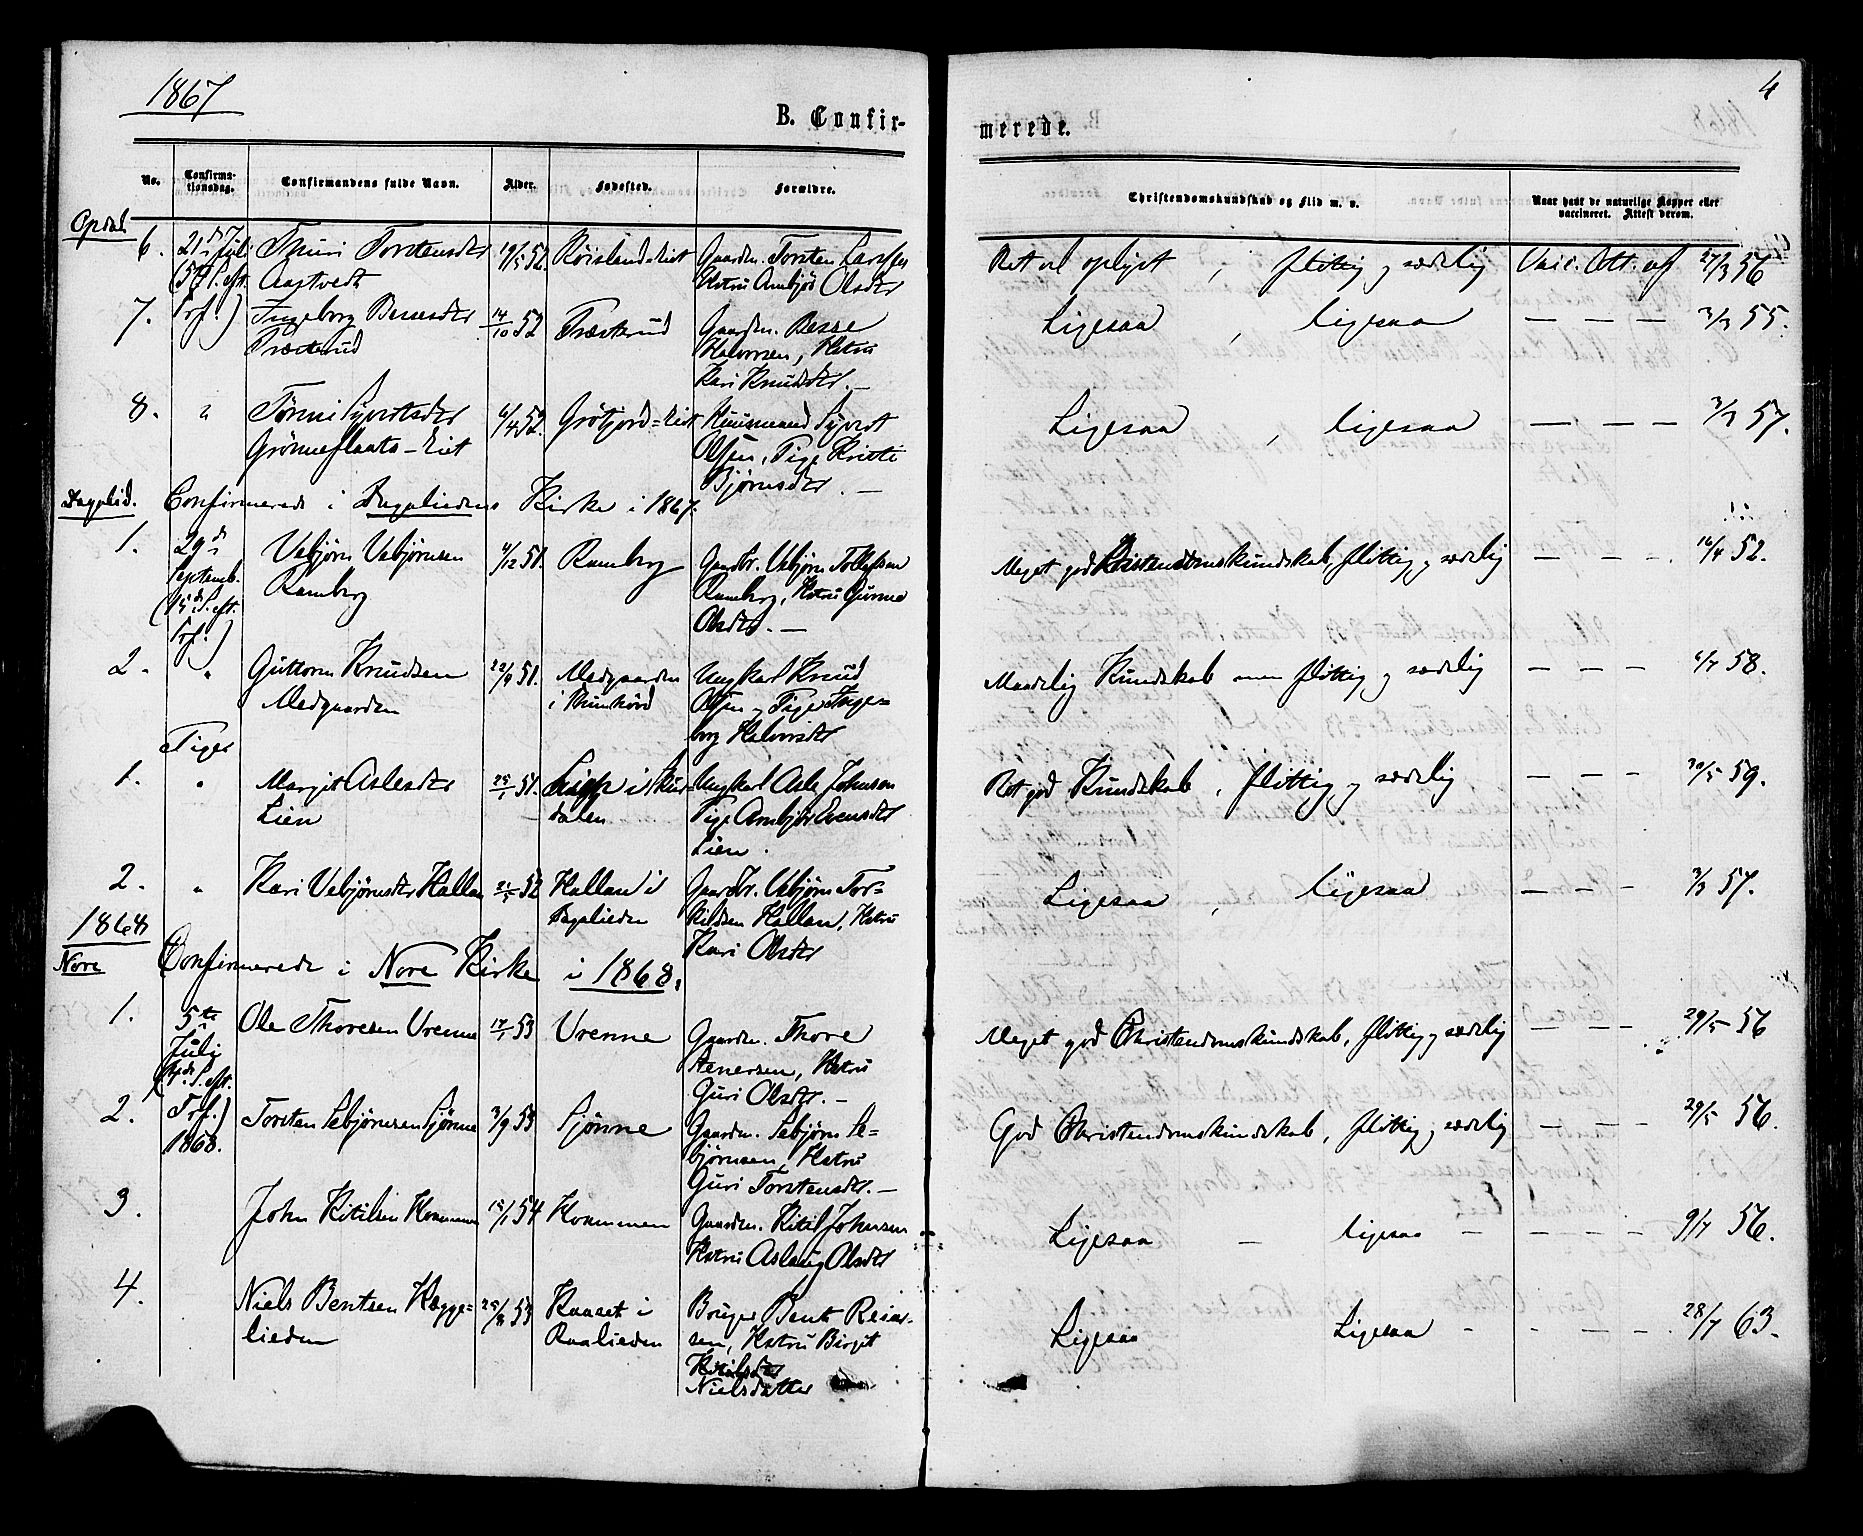 1867
4
B. Confir-
merede.
No.
Confirma-
tionsdag.
Confirmandens fulde Navn.
Alder.
Fødested.
Forældre.
Christendomskundskab og Flid m. v.
Naar havt de naturlige Kopper eller
vaccineret. Attest derom.
Opdal
6.
21de Juli
(5te S. eft.
Trf.)
Thuri Torstensdtr
Aastvedt
19/5 52.
Røislandseiet
Gaardm. Torsten Larssen
Hstru Ambjør Olsdtr
Ret vel oplyst, flittig og sædelig
Vacc. Att. af 27/3 56
7.
Ingeborg Bessesdtr
Træterud
14/10 52
Træterud
Gaardm. Besse
Halvorsen, Hstru
Kari Knudsdtr. —
Ligesaa, ligesaa
— — — 3/3 55.
8.
"
Tønni Syvertsdtr
Grønneflaata-Eiet
6/4 52.
Grøtjord-Eiet
Huusmand Syvert
Olsen, Pige Kristi
Bjørnsdtr. —
Ligesaa, ligesaa
— — — 3/7 57.
Dagalid.
Confirmerede i Dagaliedens Kirke i 1867.
1.
29de
Septemb.
(15de S. eft.
Trf.)
Vebjørn Vebjørnsen
Ramberg
4/12 51.
Ramberg
Gaardbr. Vebjørn Tollefsen
Ramberg, Hstru Gunne
Olsdtr. —
Meget god Christendomskundskab, flittig og sædelig
— — — 16/4 52.
2.
"
Guttorm Knudsen
Medgaarden
22/9 51.
Medgaarden
Ungkarl Knud
Olsen og Pige Inge-
borg Halvorsdtr
Maadelig Kundskab men flittig og sædelig
— — — 6/7 58.
Piger
1.
"
Margit Aslesdtr
Lien
25/1 51.
i Skur-
dalen
Ungkarl Asle Johnsen
Pige Ambjør Evensdtr
Lien.
Ret god Kundskab, flittig og sædelig
— — — 30/5 59.
2.
"
Kari Vebjørnsdtr Hallan
21/5 52
Hallan i
Dagalieden
Gaardbr. Vebjørn Tor-
kildsen Hallan, Hstru
Kari Olsdtr
Ligesaa, ligesaa
— — — 3/3 57.
1868
Nore
Confirmerede i Nore Kirke i 1868.
1.
5te
Juli
S. eft.
Trf.)
1868.
Ole Thoresen Vrenne
17/1 53
Vrenne
Gaardm. Thore
Stenersen, Hstru
Guri Olsdtr. —
Meget god Christendomskundskab, flittig og sædelig
— — — 29/5 56
2.
Torsten Sebjørnsen Sjønne
3/9 53
Sjønne
Gaardm. Sebjørn Se-
bjørnsen, Hstru
Guri Torstensdtr. —
God Christendomskundskab, flittig og sædelig
— — — 29/5 56.
3.
John Kitilsen Kvammen
15/1 54
Kvammen
Gaardm. Kitil Johnsen
Hstru Aslaug Olsdtr
Ligesaa — ligesaa — — — — 9/7 56.
4.
Niels Bentsen Hægge-
lieden
25/8 53
Kaaset i
Raalieden
Bruger Bent Reiar-
sen, Hstru Birgit
Nielsdatter
Ligesaa Ligesaa — — — — 28/7 63.